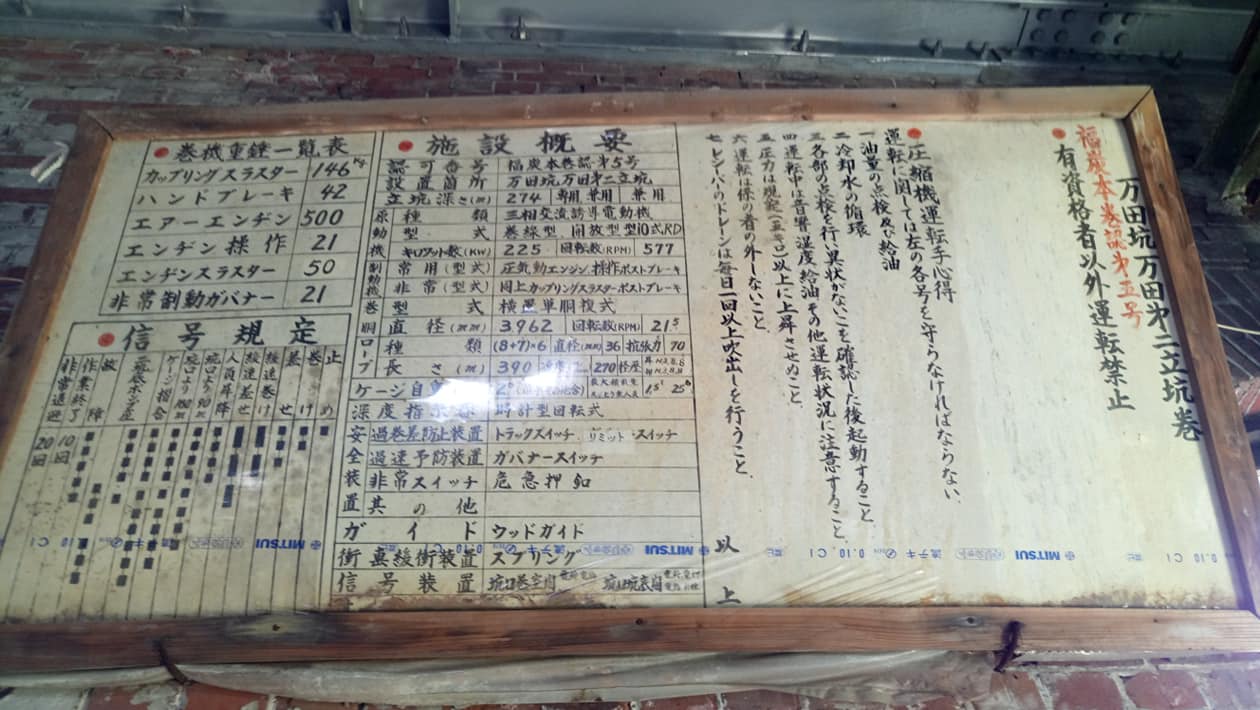 万田坑万田第二立坑巻
福炭本巻認第五号
有資格者以外運転禁止
圧縮機運転手心得
運転に関しては左の各号を守らなければならない.
一 油量の点検及び給油
二 冷却水の循環
三 各部の点検を行い異状がないことを確認した後起動すること
四 運転中は音響 湿度 給油その他運転状況に注意すること.
五 圧力は規定(五キロ)以上に上昇させぬこと.
六 運転は係の者の外しないこと
七 レシーバーのドレーンは毎日一回以上吹出しを行うこと.
以上
施設概要
認可番号 福炭本巻認第5号
設置箇所 万田坑万田第二立坑
立坑深さ(m) 274 専用,兼用 兼用
原動機 種類 三相交流誘導電動機
型式 巻線型.開放型型10式RD
キロワット数(KW) 225 回転数(RPM) 577
制動機 常用(型式) 圧気動エンジン.操作ポストブレーキ
非常(型式) 同上カップリングスラスターポストブレーキ
巻胴 型式 横置単胴複式
直径(mm) 3962 回転数(RPM) 21.5
ロープ 種類 (8+7)×6 直径(mm) 36 抗張力 70
長さ(m) 390
深度指示器 時計型回転式
安全装置 過巻差防止装置 トラックスイッチ.リミットスイッチ
過速予防装置 ガバナースイッチ
非常スイッチ 危急押釦
其の他
ガイド ウッドガイド
衝突緩衝装置 スプリング
信号装置
巻機重錘一覧表
カップリングスラスター 146Kg
ハンドブレーキ 42
エアーエンヂン 500
エンヂン操作 21
エンヂンスラスター 50
非常制動ガバナー 21
信号規定
止め
巻け
差せ
捲速巻け
捲速差せ
人員昇降
ケージ指合
故障
作業終了 10回
非常退避 20回
MITSUI
MITSUI
MITSUI